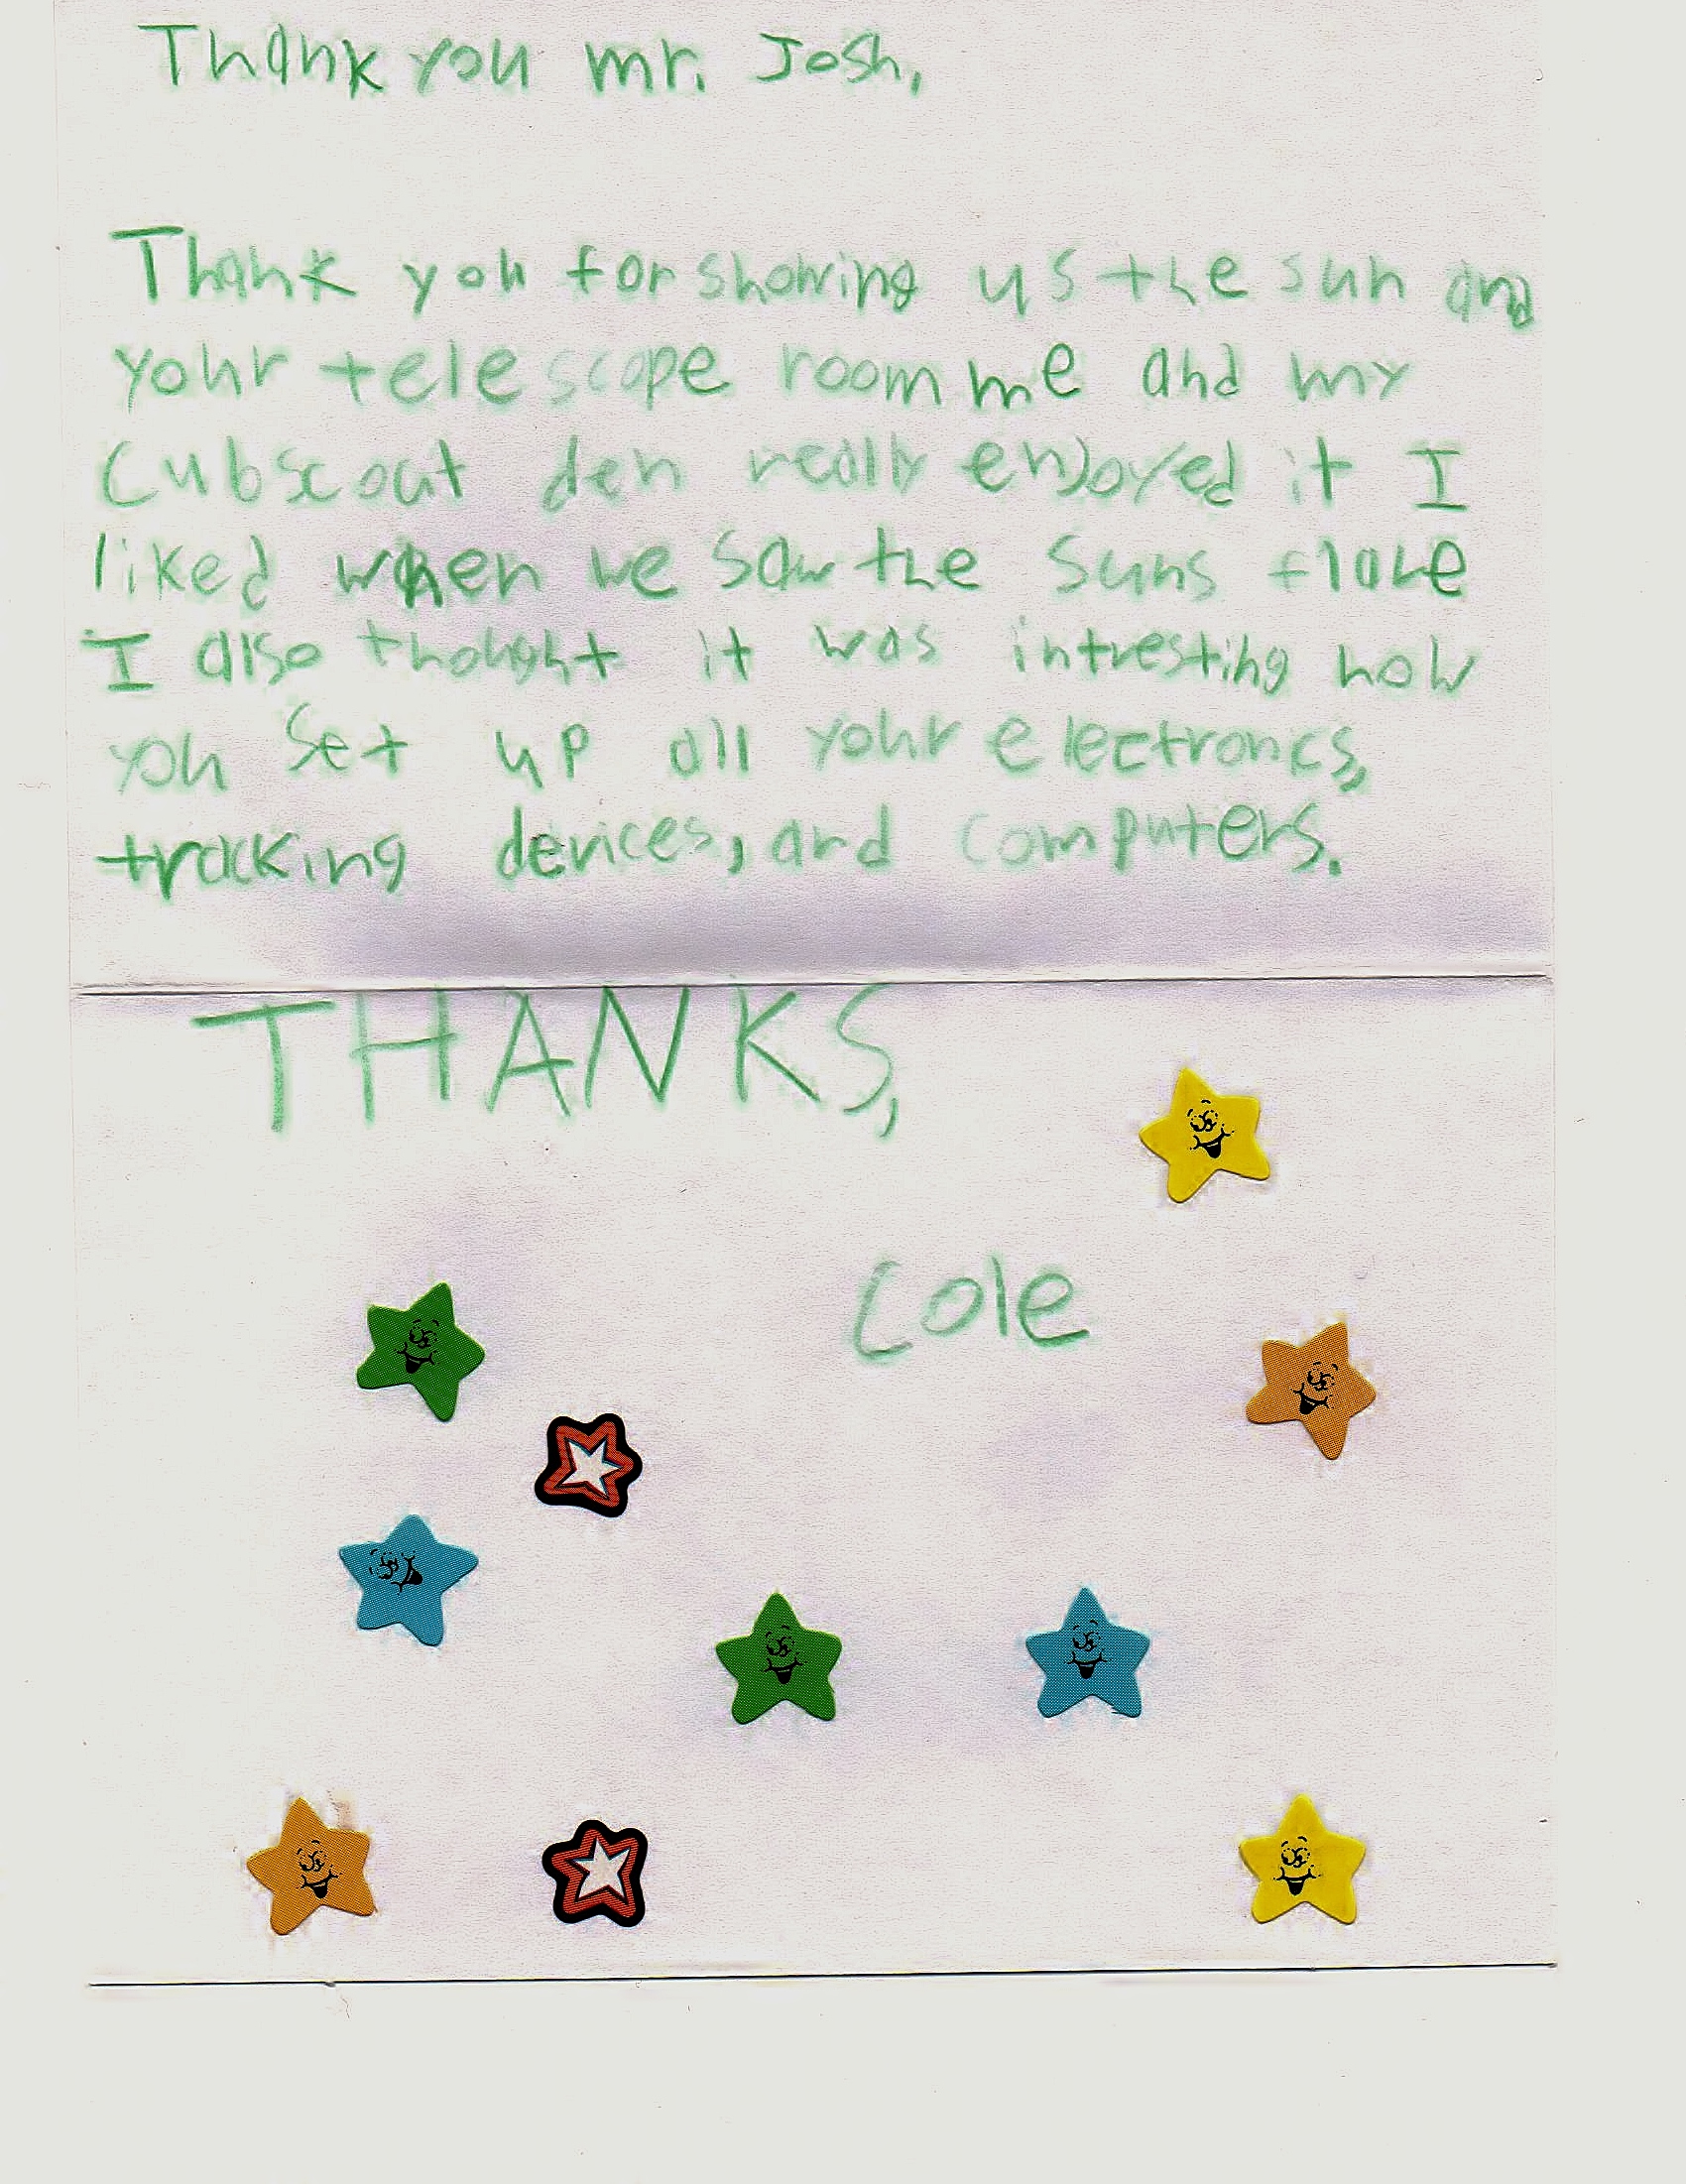 Thank you mr. Josh,
Thank you for showing us the sun and
your telescope room me and my
Cubscout den really enjoyed it I
liked when we saw the suns flare
I also thought it was intresting how
you set up all your electroncs,
tracking devices, and computers.
THANKS,
Cole